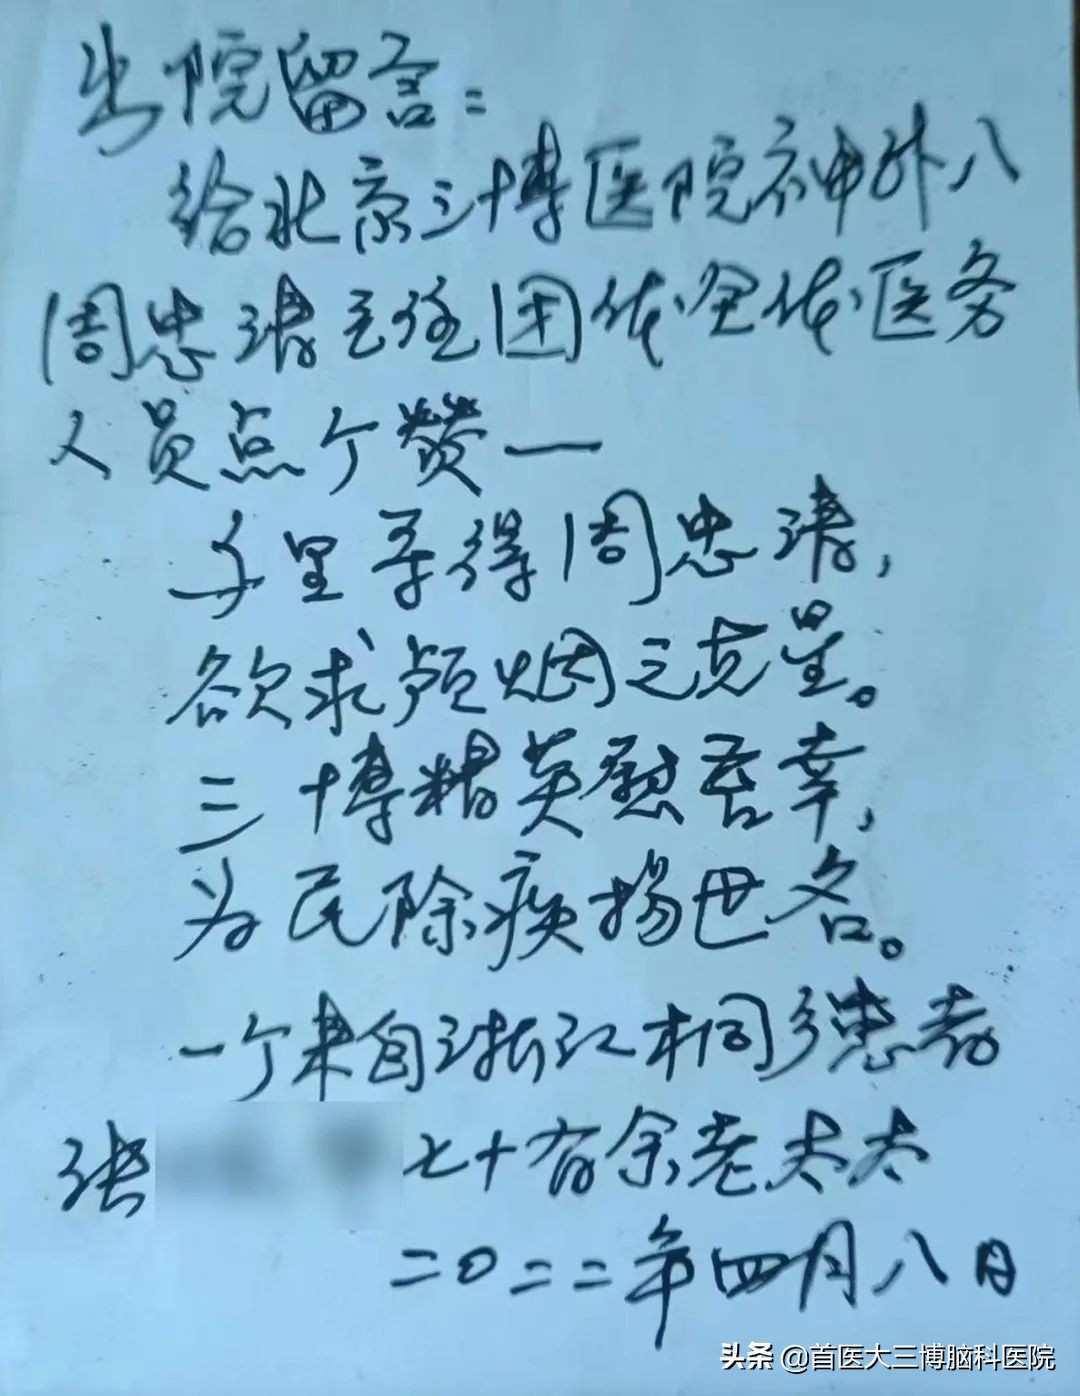 出院留言：
给北京三博医院神外八
周忠清主任团体全体医务
人员点个赞一
千里寻得周忠清，
欲求颅烟之克星。
三博精英慰吾幸，
为民除疾扬世名。
一个来自浙江桐乡患者
张 七十有余老太太
二〇二二年四月八日
头条 @首医大三博脑科医院